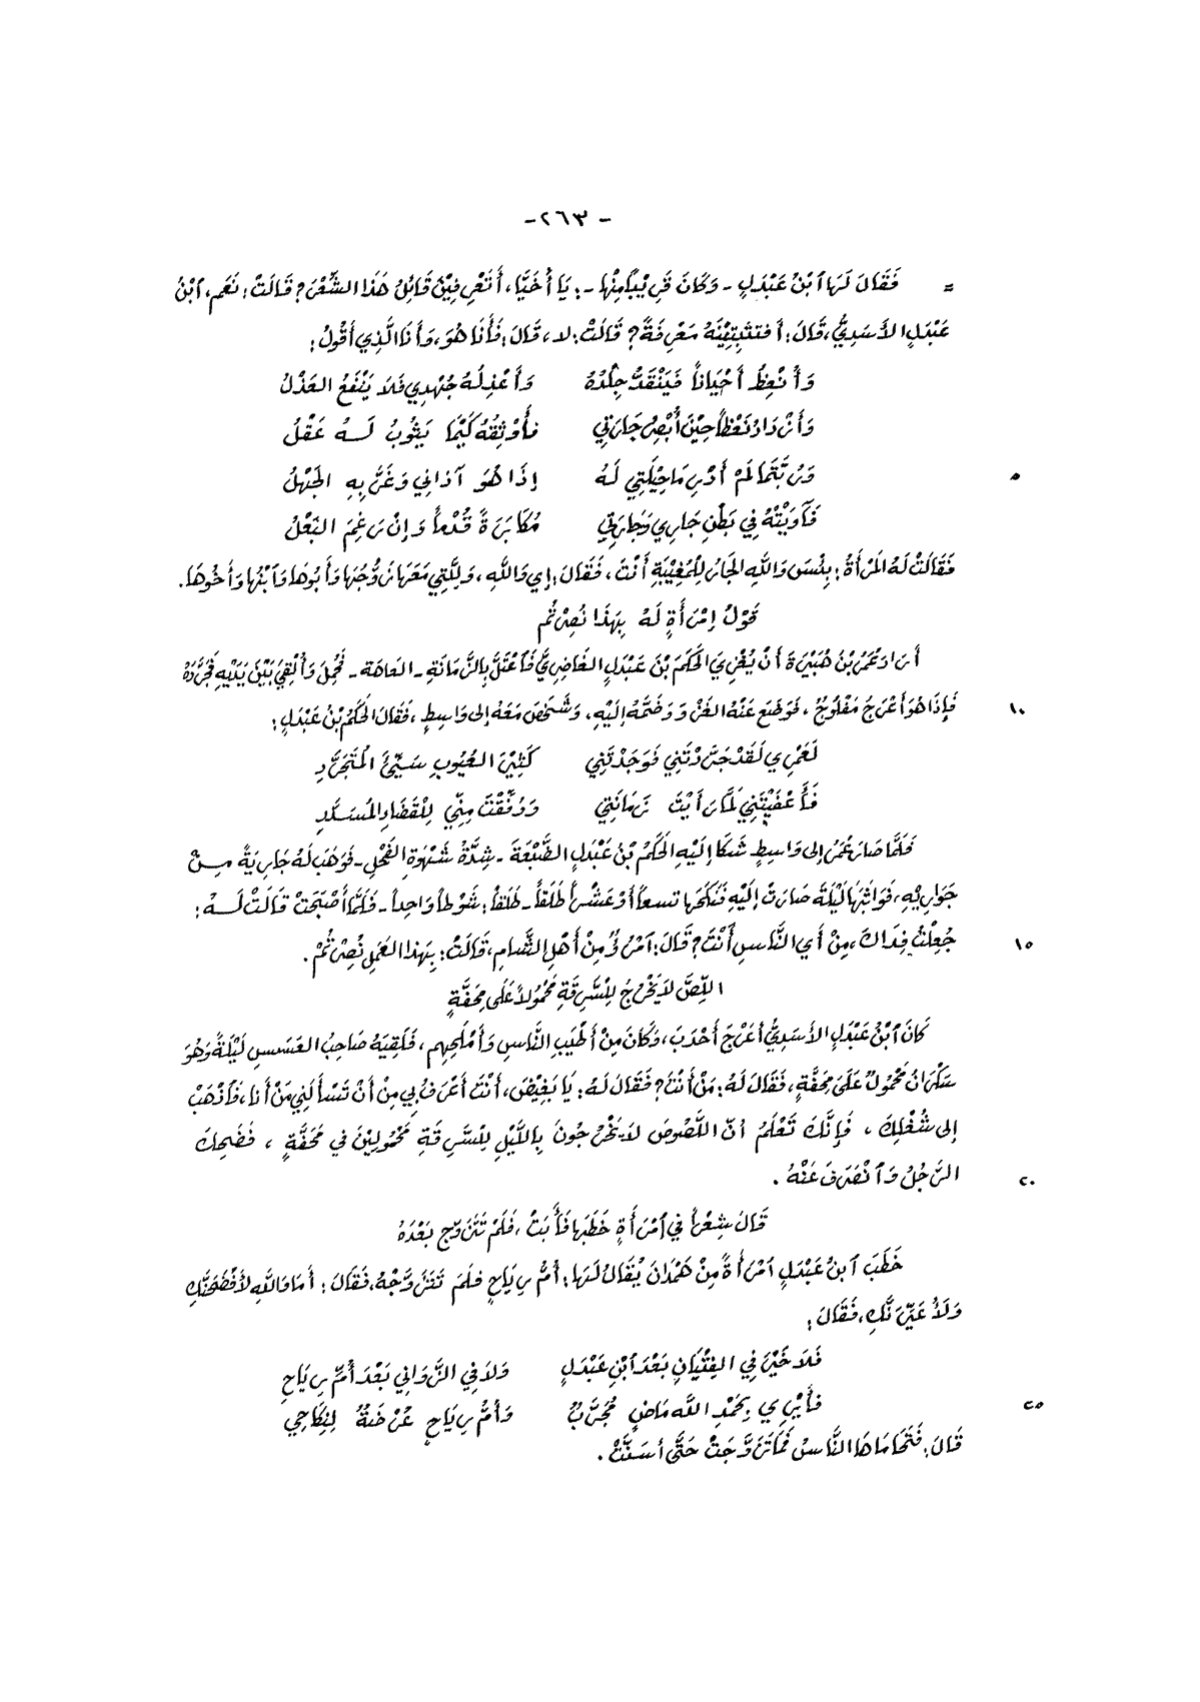 - ٢٦٣ -
= فَقَالَ لَهَا ٱبْنُ عَبْدَلٍ - وَكَانَ قَرِيْبَاً مِنْها - : يَا أُخَيَّا، أَتَعْرِفِيْنَ قَائِلَ هَذَا الشِّعْرَ؟ قَالَتْ : نَعَم، ٱبْنُ
عَبْدَلٍ الأَسَدِيُّ، قَالَ : أَفَتُثْبِتِيْنَهُ مَعْرِفَةً؟ قَالَتْ : لا، قَالَ : فَأَنَا هُوَ، وَأَنَا الَّذِي أَقُولُ :
وَأُنْعِظُ أَحْيَاناً فَيَنْقَدُّ جِلْدُهُ وَأَعْذِلُهُ جُهْدِي فَلاَ يَنْفَعُ العَذْلُ
وَأَزْدَادُ نَعْظاً حِيْنَ أُبْصِرُ جَارَتِي فَأُوْثِقُهُ كَيْمَا يَثُوبُ لَهُ عَقْلُ
٥ وَرُبَّتَمَا لَمْ أَدْرِ مَا حِيْلَتِي لَهُ إِذَا هُوَ آذَانِي وَغَرَّ بِهِ الجَهْلُ
فَآوَيْتُهُ فِي بَطْنِ جَارِي وَجَارَتِي مُكَابَرَةً قُدْماً وَإِنْ رَغِمَ البَعْلُ
فَقَالَتْ لَهُ المَرْأَةُ : بِئْسَ وَاللَّهِ الجَارُ لِلْمُغِيْبَةِ أَنْتَ، فَقَالَ : إِي وَاللَّهِ، وَلِلَّتِي مَعَهَا زَوْجُهَا وَأَبُوهَا وَٱبْنُها وَأَخُوهَا.
قَوْلُ ٱمْرَأَةٍ لَهُ بِهَذَا نُصِرْتُم
أَرَادَ عُمَرُ بْنُ هُبَيْرَةَ أَنْ يُغْزِيَ الحَكَمَ بْنَ عَبْدَلٍ الغَاضِرِيَّ فَٱعْتَلَّ بِالزَّمَانَةِ - العَاهَة - فَحُمِلَ وَأُلْقِيَ بَيْنَ يَدَيْهِ فَجَرَّدَهُ
١٠ فَإِذَا هُوَ أَعْرَجُ مَفْلُوجٌ، فَوَضَعَ عَنْهُ الغَزْوَ وَضَمَّهُ إِلَيْهِ، وَشَخَصَ مَعَهُ إِلى وَاسِطٍ، فَقَالَ الحَكَمُ بْنُ عَبْدَلٍ :
لَعَمْرِي لَقَدْ جَرَّدْتَنِي فَوَجَدْتَنِي كَثِيْرَ العُيُوبِ سَيِّئَ المُتَجَرَّدِ
فَأَعْفَيْتَنِي لَمَّا رَأَيْتَ زَمَانَتِي وَوُفِّقْتَ مِنِّي لِلْقَضَاءِ المُسَدَّدِ
فَلَمَّا صَارَ عُمَرُ إِلى وَاسِطٍ شَكَا إِلَيْهِ الحَكَمُ بْنُ عَبْدَلٍ الضَّبَعَةَ - شِدَّةُ شَهْوَةِ الفَحْلِ - فَوَهَبَ لَهُ جَارِيَةً مِنْ
جَوَارِيْهِ، فَوَاثَبَهَا لَيْلَةَ صَارَتْ إِلَيْهِ فَنَكَحَهَا تِسعاً أَوْ عَشْراً طَلَقاً - طَلَقاً : شَوْطاً وَاحِداً - فَلَمَّا أَصْبَحَتْ قَالَتْ لَهُ :
١٥ جُعِلْتُ فِدَاكَ، مِنْ أَي النَّاسِ أَنْتَ؟ قَالَ : ٱمْرُؤٌ مِنْ أَهْلِ الشَّامِ، قَالَتْ : بِهَذا العَمَلِ نُصِرْتُمْ .
اللِّصَّ لاَ يَخْرُجُ لِلسَّرِقَةِ مَحْمُولاً عَلَى مِحَفَّةٍ
كَانَ ٱبْنُ عَبْدَلٍ الأَسَدِيُّ أَعْرَجَ أَحْدَبَ، وَكَانَ مِنْ أَطْيَبِ النَّاسِ وَأَمْلَحِهِم، فَلَقِيَهُ صَاحِبُ العَسَسِ لَيْلَةً وَهُوَ
سَكْرَانُ مَحْمُولٌ عَلَى مِحَفَّةٍ، فَقَالَ لَهُ : مَنْ أَنْتَ؟ فَقَالَ لَهُ : يَا بَغِيْضُ، أَنْتَ أَعْرَفُ بِي مِنْ أَنْ تَسْأَلَنِي مَنْ أَنا، فَٱذْهَبْ
إِلى شُغْلِكَ، فَإِنَّكَ تَعْلَمُ أَنَّ اللُّصُوصَ لاَ يَخْرُجُونَ بِاللَّيْلِ لِلسَّرِقَةِ مَحْمُولِيْنَ فِي مِحَفَّةٍ، فَضَحِكَ
٢٠ الرَّجُلُ وَٱنْصَرَفَ عَنْهُ .
قَالَ شِعْراً فِي ٱمْرَأَةٍ خَطَبَها فَأَبَتْ، فَلَمْ تَتَزَوَّج بَعْدَهُ
خَطَبَ ٱبنُ عَبْدَلٍ ٱمْرَأَةً مِنْ هَمْدَانَ يُقَالُ لَهَا : أُمُّ رِيَاحٍ فَلَمَ تَتَزَوَّجْهُ، فَقَالَ : أَمَا وَاللَّهِ لأَفْضَحَنَّكِ
وَلأُعَيِّرَنَّكِ، فَقَالَ :
فَلاَ خَيْرَ فِي الفِتْيَانِ بَعْدَ ٱبْنِ عَبْدَلٍ وَلاَ فِي الزَّوَانِي بَعْدَ أُمِّ رِيَاحِ
٢٥ فَأَيْرِي بِحَمْدِ اللَّه مَاضٍ مُجَرَّبٌ وَأُمُّ رِيَاحٍ عُرْضَةٌ لِنِكَاحِي
قَالَ : فَتَحَامَاهَا النَّاسُ فَمَا تَزَوَّجَتْ حَتَّى أَسَنَّتْ .